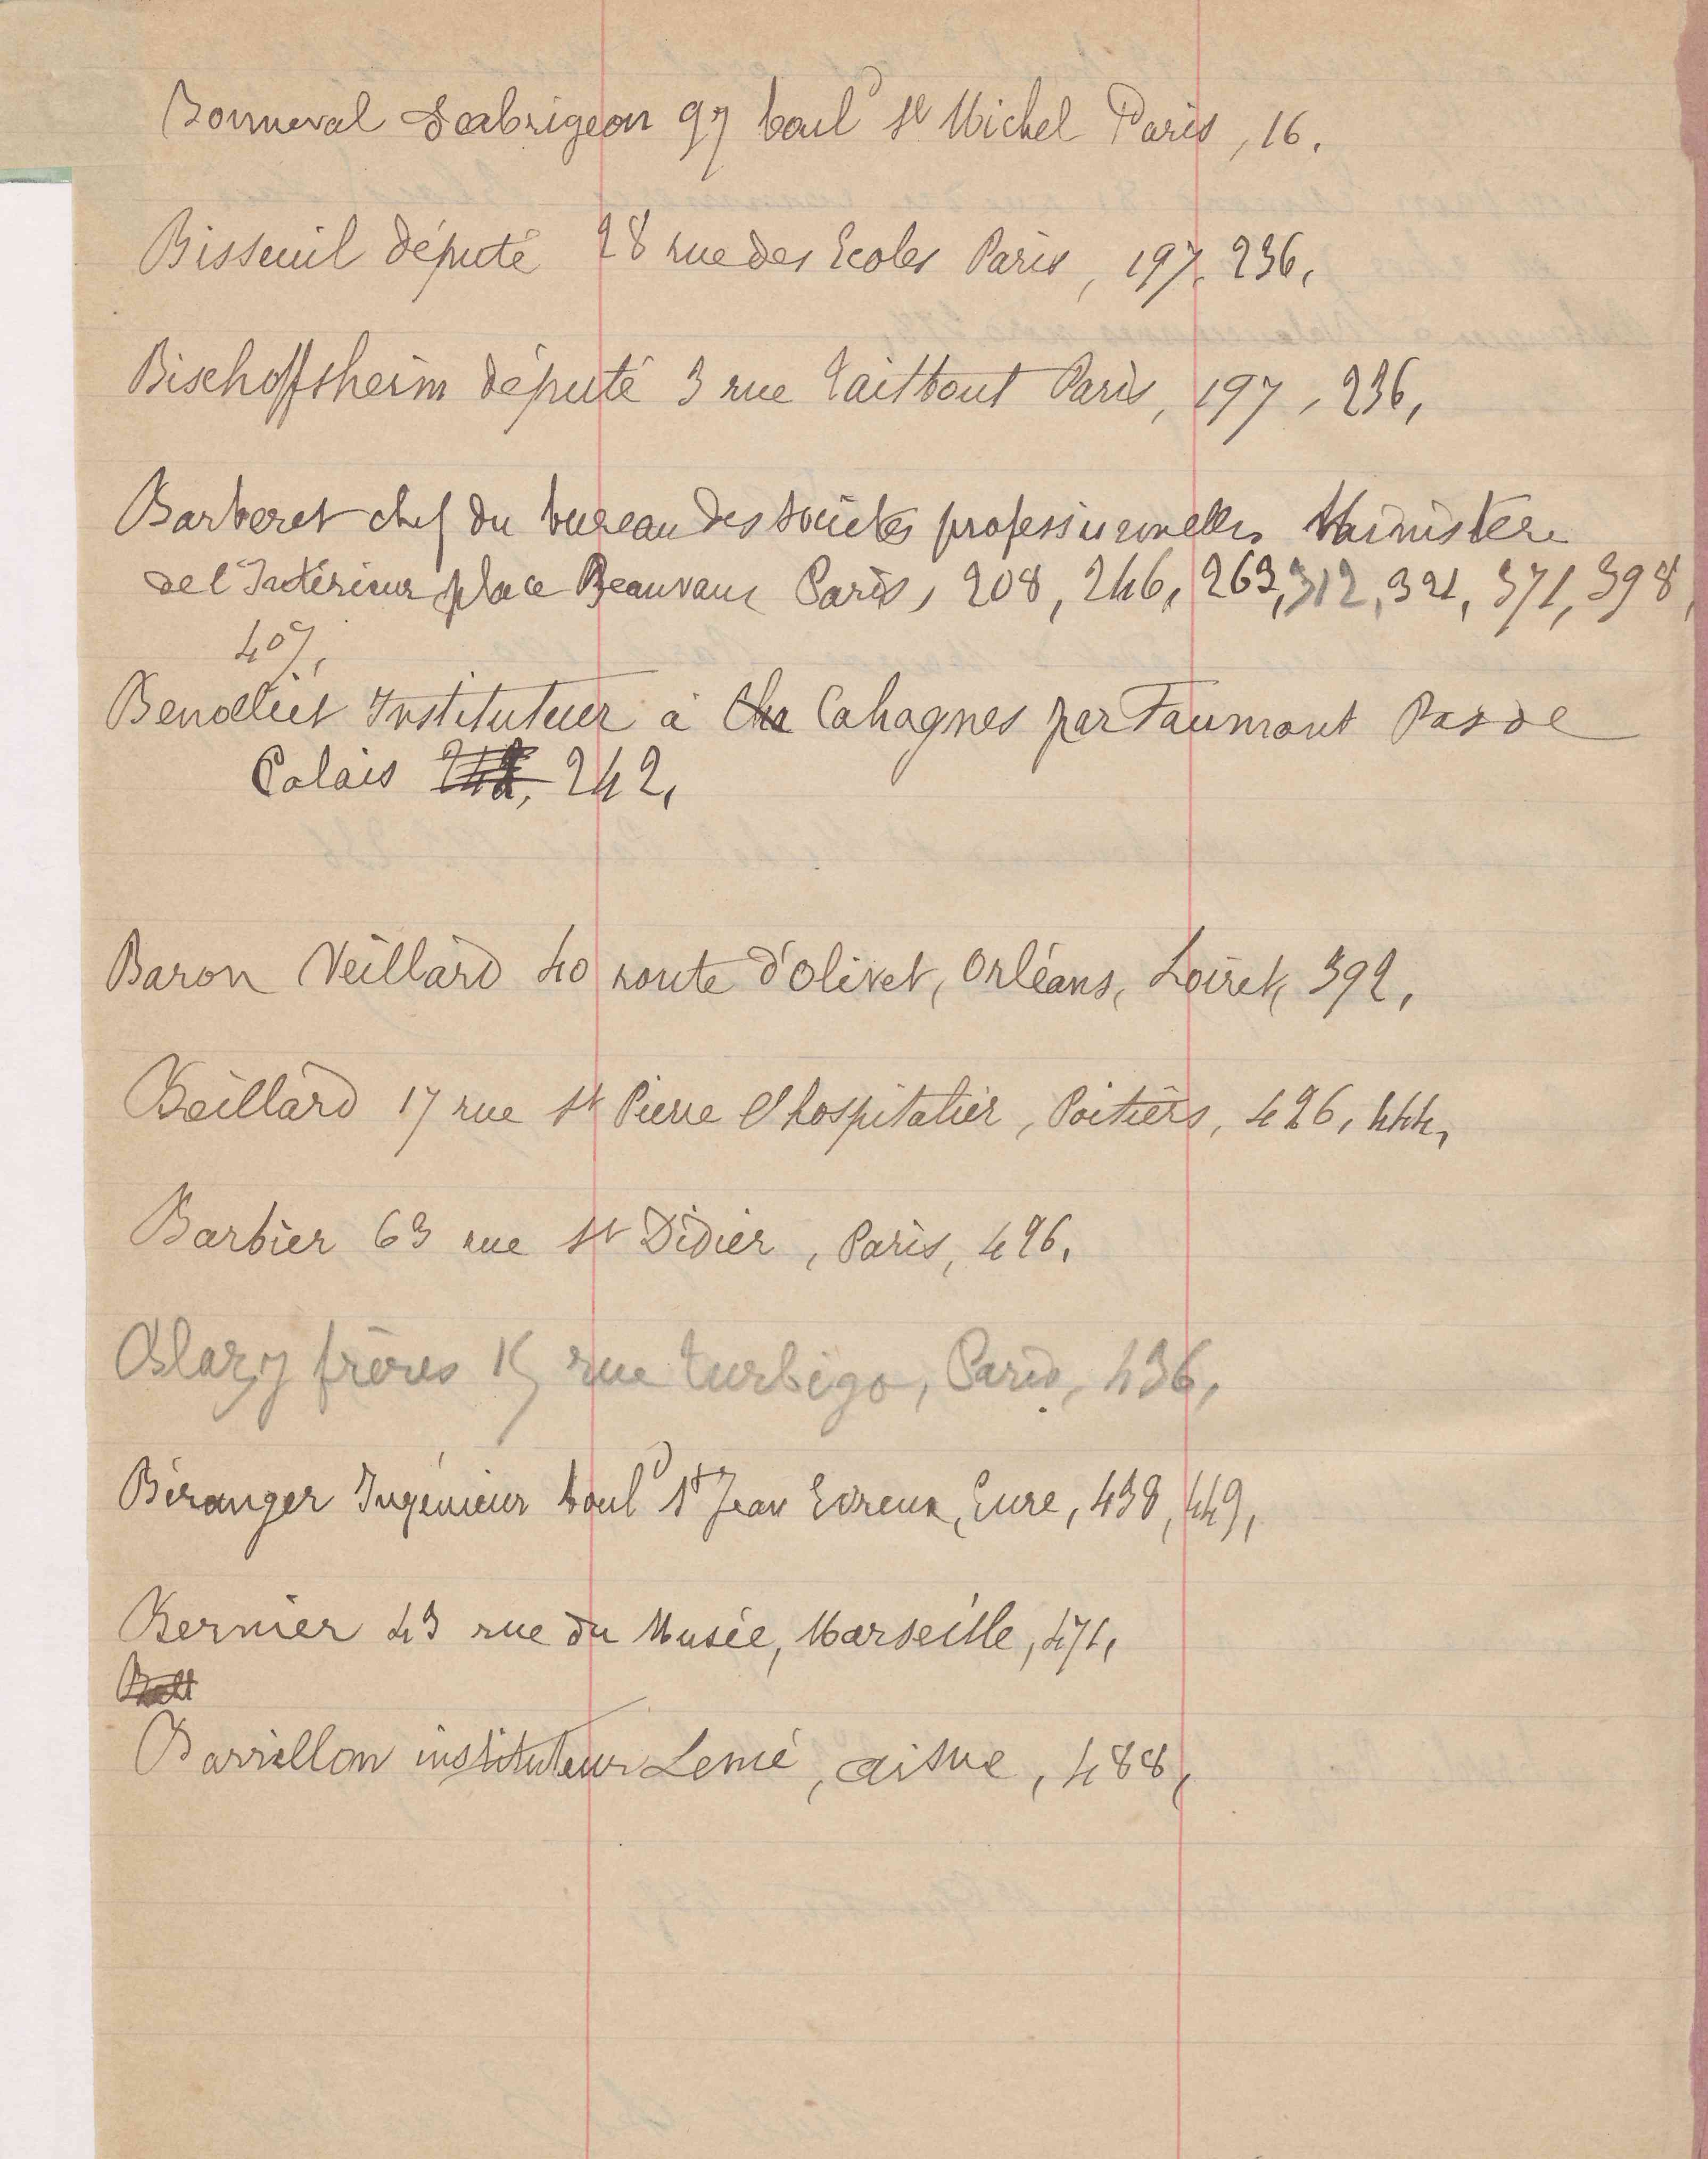 Bonneval Dabrigeon 97 boul^d S^t Michel Paris, 16.
Bisseuil député 28 rue des Ecoles Paris, 197, 236,
Bischoffsheim député 3 rue Taitbout Paris, 197, 236,
Barberet chef du bureau des sociétés professionnelles Ministère
de l'Intérieur place Beauvau Paris, 208, 246, 263, 312, 321, 371, 398,
407,
Benoelict Instituteur à Cahagnes par Faumont Pas de
Calais 242,
Baron Veillard 40 route d'Olivet, Orléans, Loiret, 392,
Beillard 17 rue S^t Pierre l'hospitalier, Poitiers, 426, 444,
Barbier 63 rue S^t Didier, Paris, 426,
Blazy frères 15 rue Turbigo, Paris, 436,
Béranger Ingénieur boul^d S^t Jean Evreux, Eure, 438, 449,
Bernier 43 rue du Musée, Marseille, 471,
Barrillon instituteur Lemé, aisne, 488,